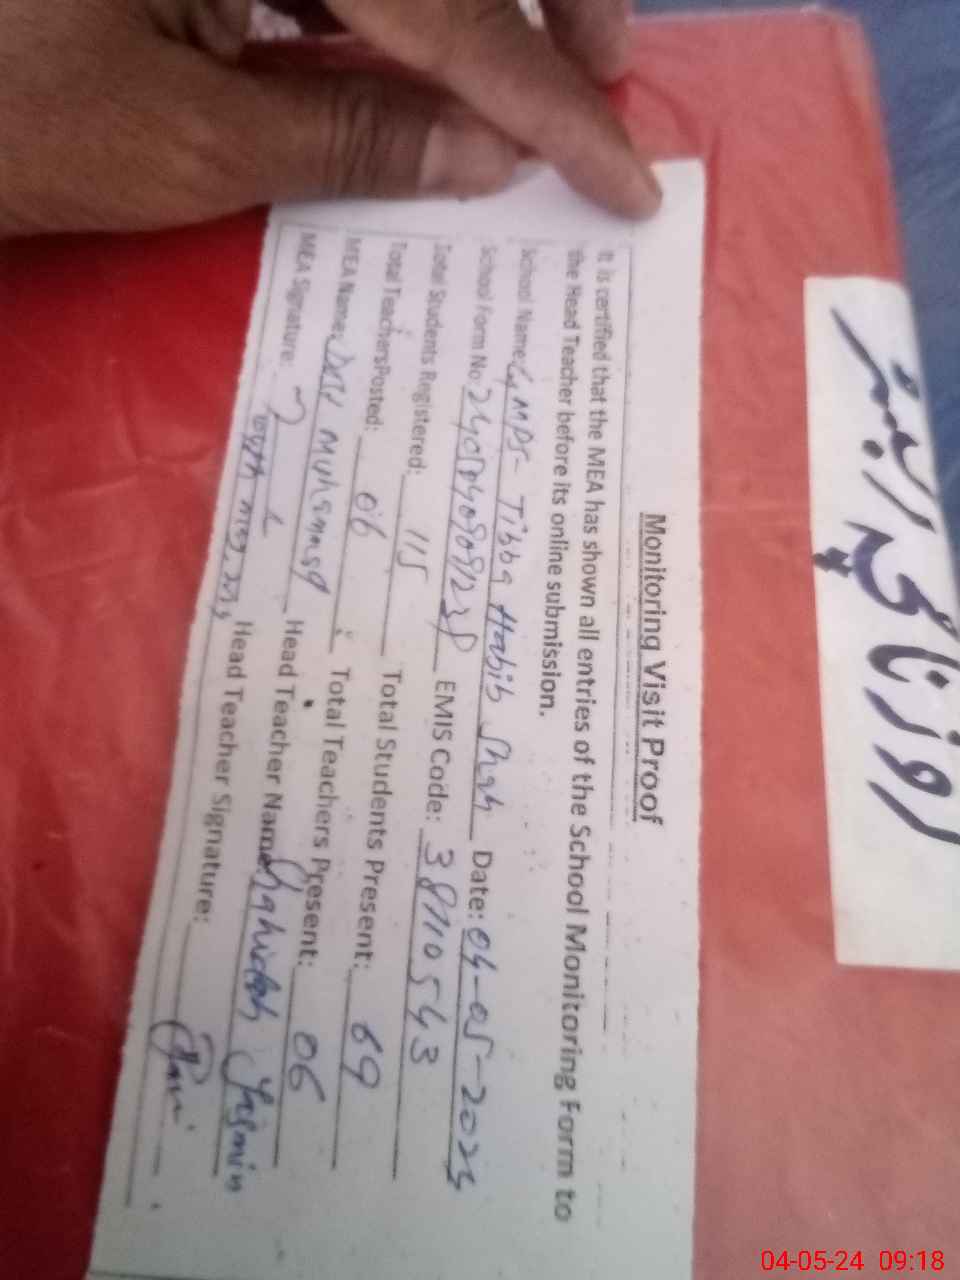 روزنامچہ البم
Monitoring Visit Proof
It is certified that the MEA has shown all entries of the School Monitoring Form to
the Head Teacher before its online submission.
School Name: GMPS- Tibba Habib Shah Date: 04-05-2024
School Form No: EMIS Code: 38110543
Total Students Registered: 115 Total Students Present: 69
Total Teachers Posted: 06 Total Teachers Present: 06
MEA Name: Muhammad Head Teacher Name: Shahidah Yasmin
MEA Signature: Head Teacher Signature:
04-05-24 09:18